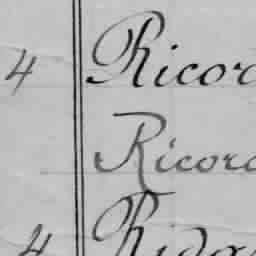 4 Ricor
Ricord
4 Rida